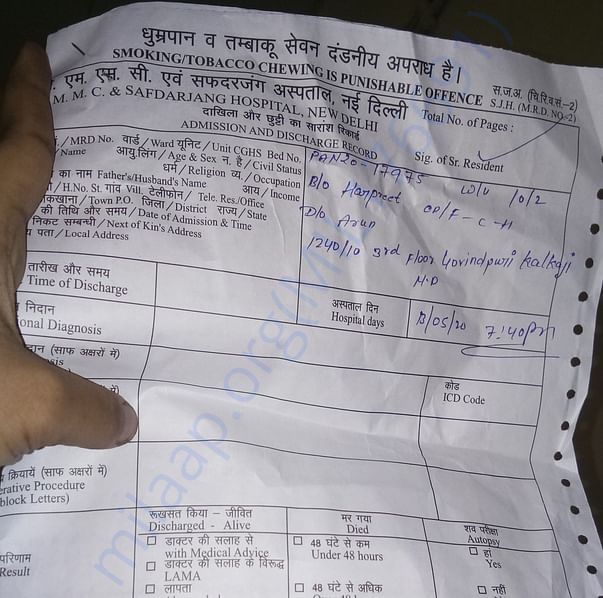 धुम्रपान व तम्बाकू सेवन दंडनीय अपराध है।
SMOKING/TOBACCO CHEWING IS PUNISHABLE OFFENCE
स.ज.अ. (चि.रि.वि.सं.-2)
S.J.H. (M.R.D. NO.-2)
. एम. एस. सी. एवं सफदरजंग अस्पताल, नई दिल्ली
. M. M. C. & SAFDARJANG HOSPITAL, NEW DELHI
Total No. of Pages :
दाखिला और छुट्टी का सारांश रिकार्ड
ADMISSION AND DISCHARGE RECORD
Sig. of Sr. Resident
/ MRD No. वार्ड / Ward यूनिट / Unit CGHS Bed No.
Name आयु.लिंग / Age & Sex न. है / Civil Status
धर्म / Religion व्य. / Occupation
का नाम Father's/Husband's Name आय / Income
/ H.No. St. गांव Vill. टेलीफोन / Tele. Res./Office
कखाना / Town P.O. जिला / District राज्य / State
की तिथि और समय / Date of Admission & Time
निकट सम्बन्धी / Next of Kin's Address
पता / Local Address
PAN20-17975
B/o Harpreet
D/o Arun
1240/10 3rd Floor Govindpuri Kalkaji
N.D
तारीख और समय
Time of Discharge
अस्पताल दिन
Hospital days
13/05/20 7:40pm
निदान
onal Diagnosis
दान (साफ अक्षरों में)
कोड
ICD Code
क्रियायें (साफ अक्षरों में)
erative Procedure
block Letters)
परिणाम
Result
रूखसत किया – जीवित
Discharged - Alive
मर गया
Died
शव परीक्षा
Autopsy
डाक्टर की सलाह से
with Medical Advice
48 घंटे से कम
Under 48 hours
हां
Yes
डाक्टर की सलाह के विरूद्ध
LAMA
लापता
48 घंटे से अधिक
नहीं
milaap.org